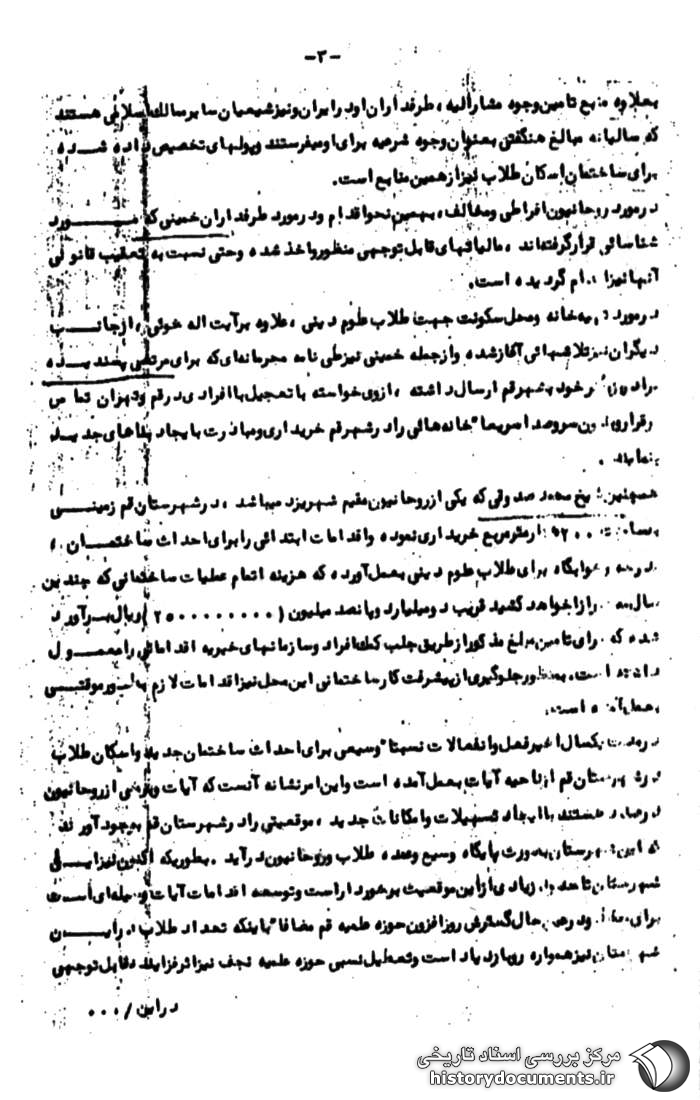 -۳-
بعلاوه منبع تامین وجوه مشارالیه ، طرفداران او در ایران و نیز شیعیان سایر ممالک اسلامی هستند
که سالیانه مبالغ هنگفتی بعنوان وجوه شرعیه برای او میفرستند و پولهای تخصیص داده شده
برای ساختمان اسکان طلاب نیز از همین منابع است.
در مورد روحانیون افراطی و مخالف، بهمین نحو اقدام و در مورد طرفداران خمینی که مورد
شناسائی قرار گرفته‌اند ، مالیاتهای قابل توجهی منظور و اخذ شده و حتی نسبت به تعقیب قانونی
آنها نیز اقدام گردیده است.
در مورد تهیه خانه و محل سکونت جهت طلاب علوم دینی ، علاوه بر آیت اله خوئی ، از جانب
دیگران نیز تلاشهائی آغاز شده و از جمله خمینی نیز طی نامه محرمانه‌ای که برای مرتضی پسندیده
برادر خود بشهر قم ارسال داشته ، از وی خواسته با تعجیل با افرادی در قم و تهران تماس
برقرار و بدون سر و صدا سریعا" خانه هائی را در شهر قم خریداری و مبادرت با یجاد بناهای جدید
بنماید .
همچنین شیخ محمد صدوقی که یکی از روحانیون مقیم شهر یزد میباشد ، در شهرستان قم زمینی
بمساحت مترمربع خریداری نموده و اقدامات ابتدائی را برای احداث ساختمان
مدرسه و خوابگاه برای طلاب علوم دینی بعمل آورده که هزینه اتمام عملیات ساختمانی که چندین
سال بدرازا خواهد کشید قریب دو میلیارد و پانصد میلیون (۲۵۰۰۰۰۰۰۰۰) ریال برآورد
شده که برای تامین مبلغ مذکور از طریق جلب کمک افراد و سازمانهای خیریه اقداماتی را معمول
داشته است. بمنظور جلوگیری از پیشرفت کار ساختمانی این محل نیز اقدامات لازم بطور موقتی
بعمل آمده است.
در مدت یکسال اخیر فعل و انفعالات نسبتا" وسیعی برای احداث ساختمان جدید و اسکان طلاب
در شهرستان قم از ناحیه آیات بعمل آمده است و این امر نشانه آنست که آیات و برخی از روحانیون
درصدد هستند با ایجاد تسهیلات و امکانات جدید ، موقعیتی را در شهرستان قم بوجود آورند
که این شهرستان بصورت پایگاه وسیع و عمده طلاب و روحانیون درآید . بطوریکه اکنون نیز این
شهرستان تا حدود زیادی از این موقعیت برخوردار است و توسعه اقدامات آیات وسیله‌ای است
برای و در عین حال گسترش روزافزون حوزه علمیه قم مضافا" باینکه تعداد طلاب در این
شهرستان نیز همواره رو بازدیاد است و تعطیل نسبی حوزه علمیه نجف نیز اثر فزاینده قابل توجهی
در این /۰۰۰
مرکز بررسی اسناد تاریخی
historydocuments.ir